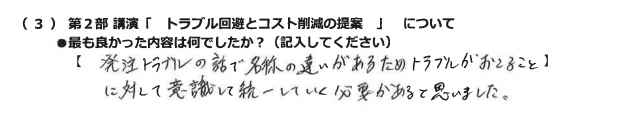 (3) 第2部 講演「 トラブル回避とコスト削減の提案 」 について
●最も良かった内容は何でしたか?(記入してください)
【 発注トラブルの話で名称の違いがあるためトラブルがおこること 】
に対して意識して統一していく必要があると思いました。